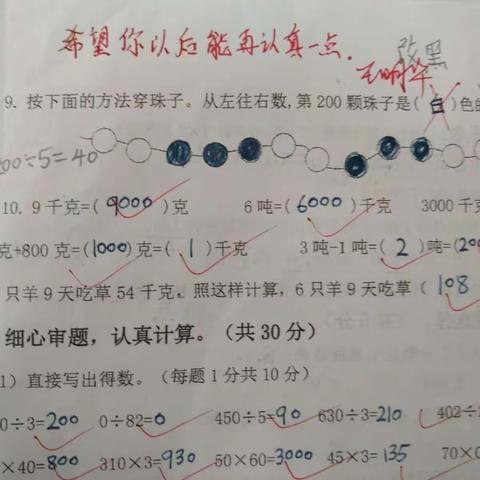 希望你以后能再认真一点.
改黑
王明华
9. 按下面的方法穿珠子。从左往右数,第 200 颗珠子是(白)色的
00÷5=40
10. 9 千克=(9000)克 6 吨=(6000)千克 3000 千克
克+800 克=(1000)克=(1)千克 3 吨-1 吨=(2)吨=(200
只羊 9 天吃草 54 千克，照这样计算，6 只羊 9 天吃草(108
细心审题，认真计算。（共 30 分）
1）直接写出得数。（每题 1 分共 10 分）
0÷3=200 0÷82=0 450÷5=90 630÷3=210 402÷
×40=800 310×3=930 50×60=3000 45×3=135 70×0